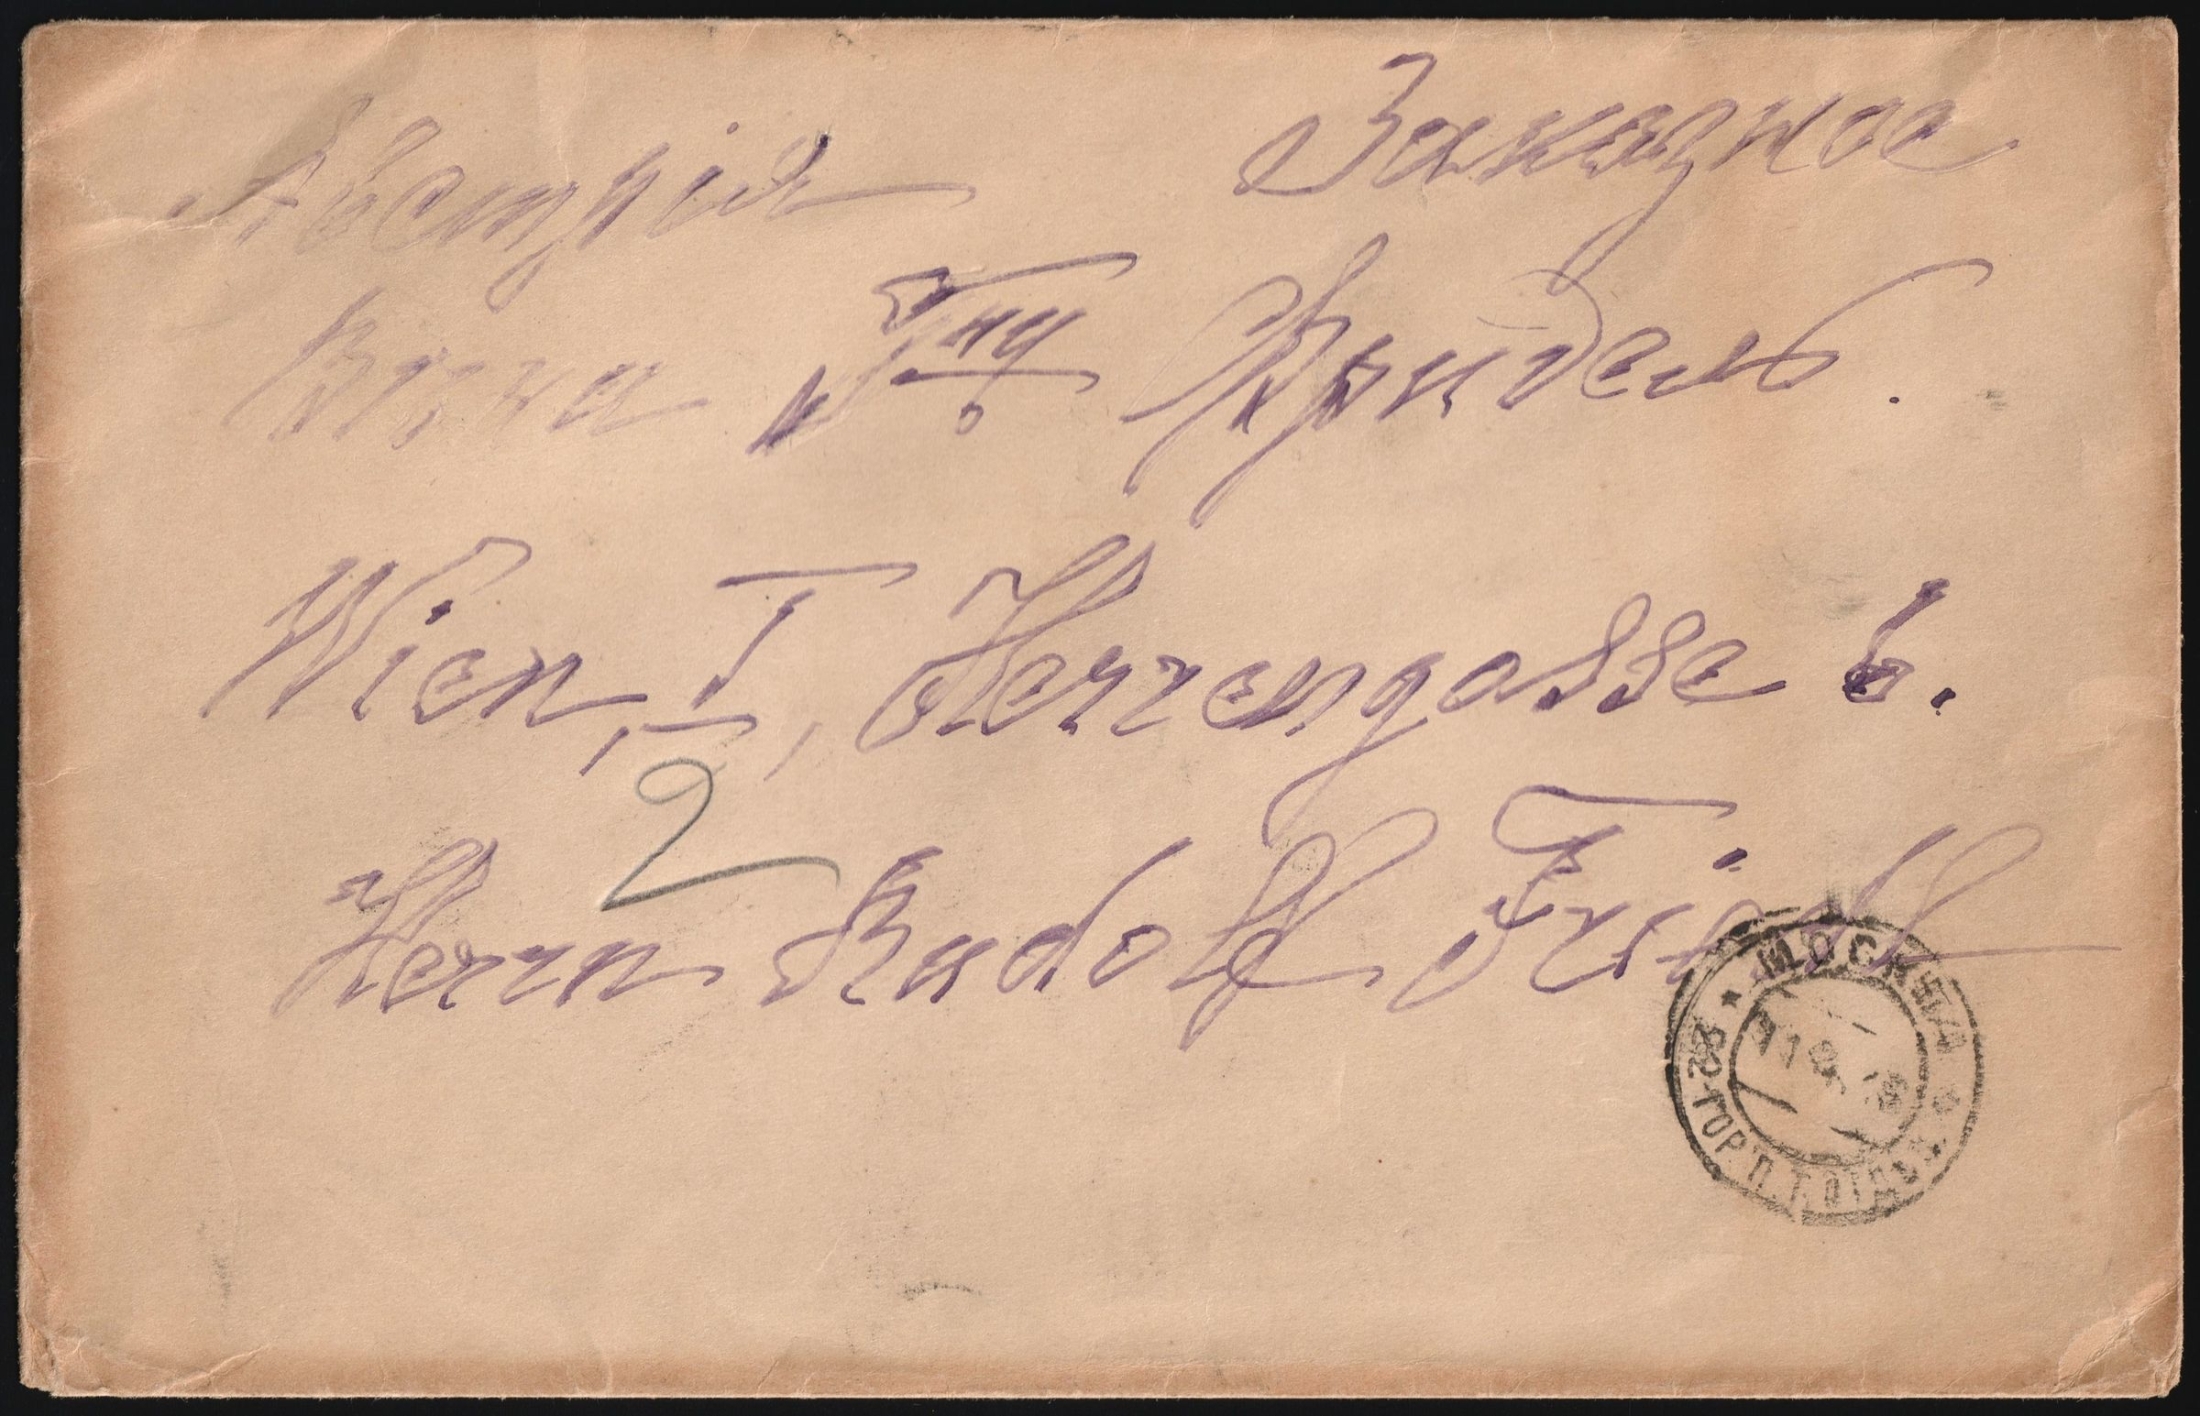 Австрія Заказное
Вѣна Гну Фридель.
Wien, I, Herrengasse 6.
2
Herrn Rudolf Friedl
МОСКВА
22 ГОР. П. Т. ОТД.